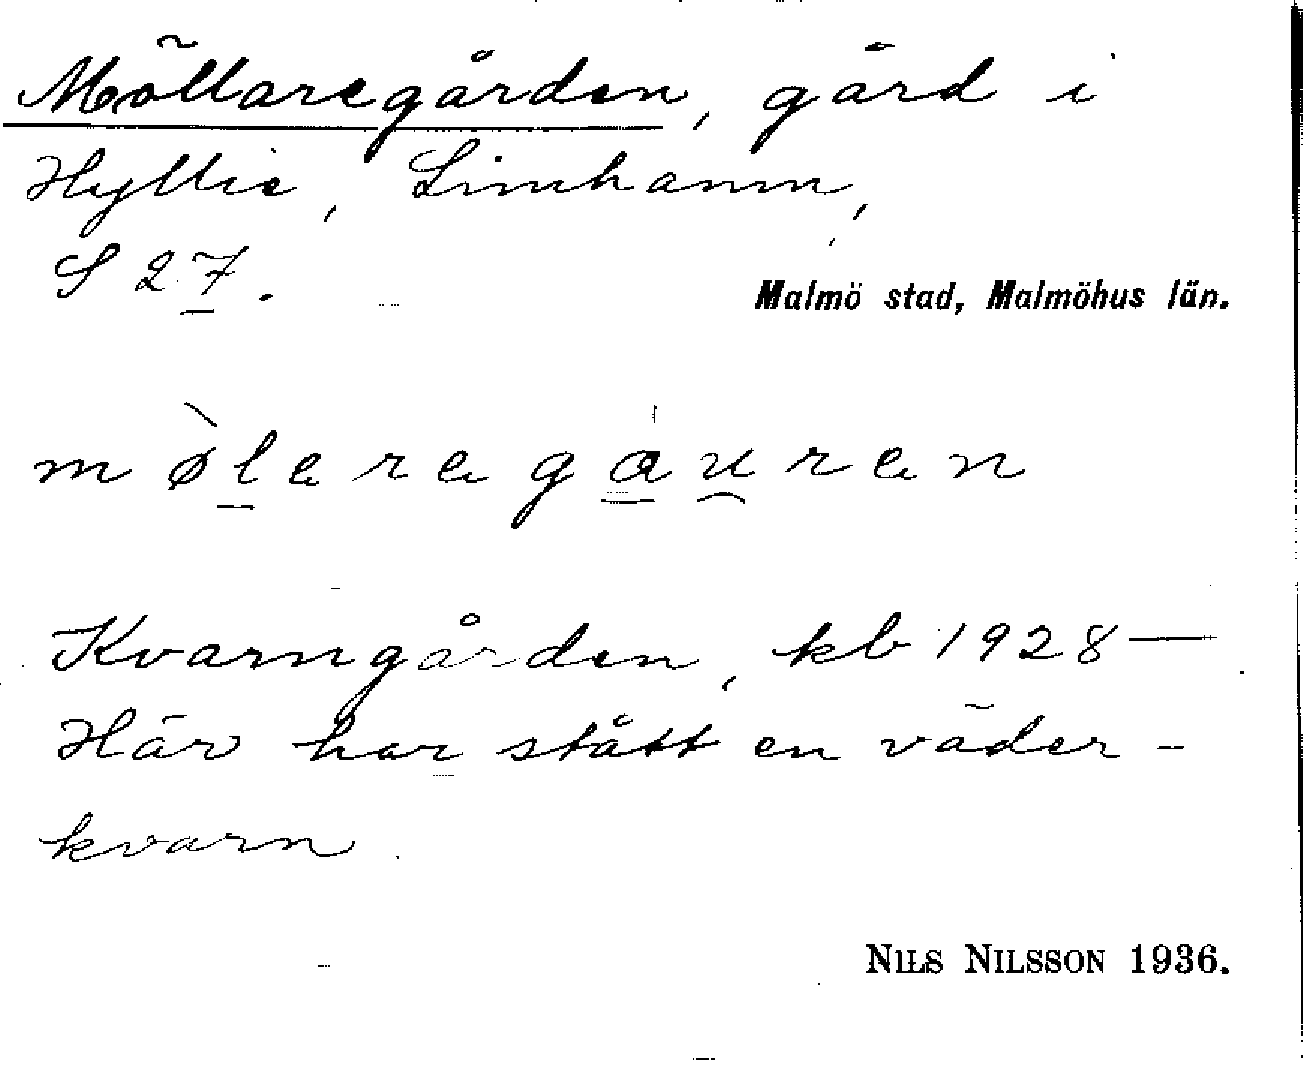 Möllaregården, gård i
Hyllie, Limhamn,
S 27.
Malmö stad, Malmöhus län.
møleregauren
Kvarngården, kb 1928—
Här har stått en väder-
kvarn.
NILS NILSSON 1936.